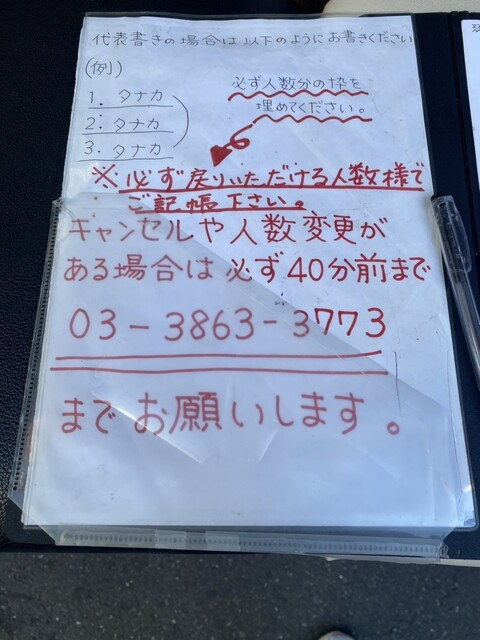 代表書きの場合は以下のようにお書きください
(例)
1. タナカ
2. タナカ
3. タナカ
必ず人数分の枠を
埋めてください。
※必ず戻りいただける人数様で
ご記帳下さい。
キャンセルや人数変更が
ある場合は必ず40分前まで
03-3863-3773
までお願いします。